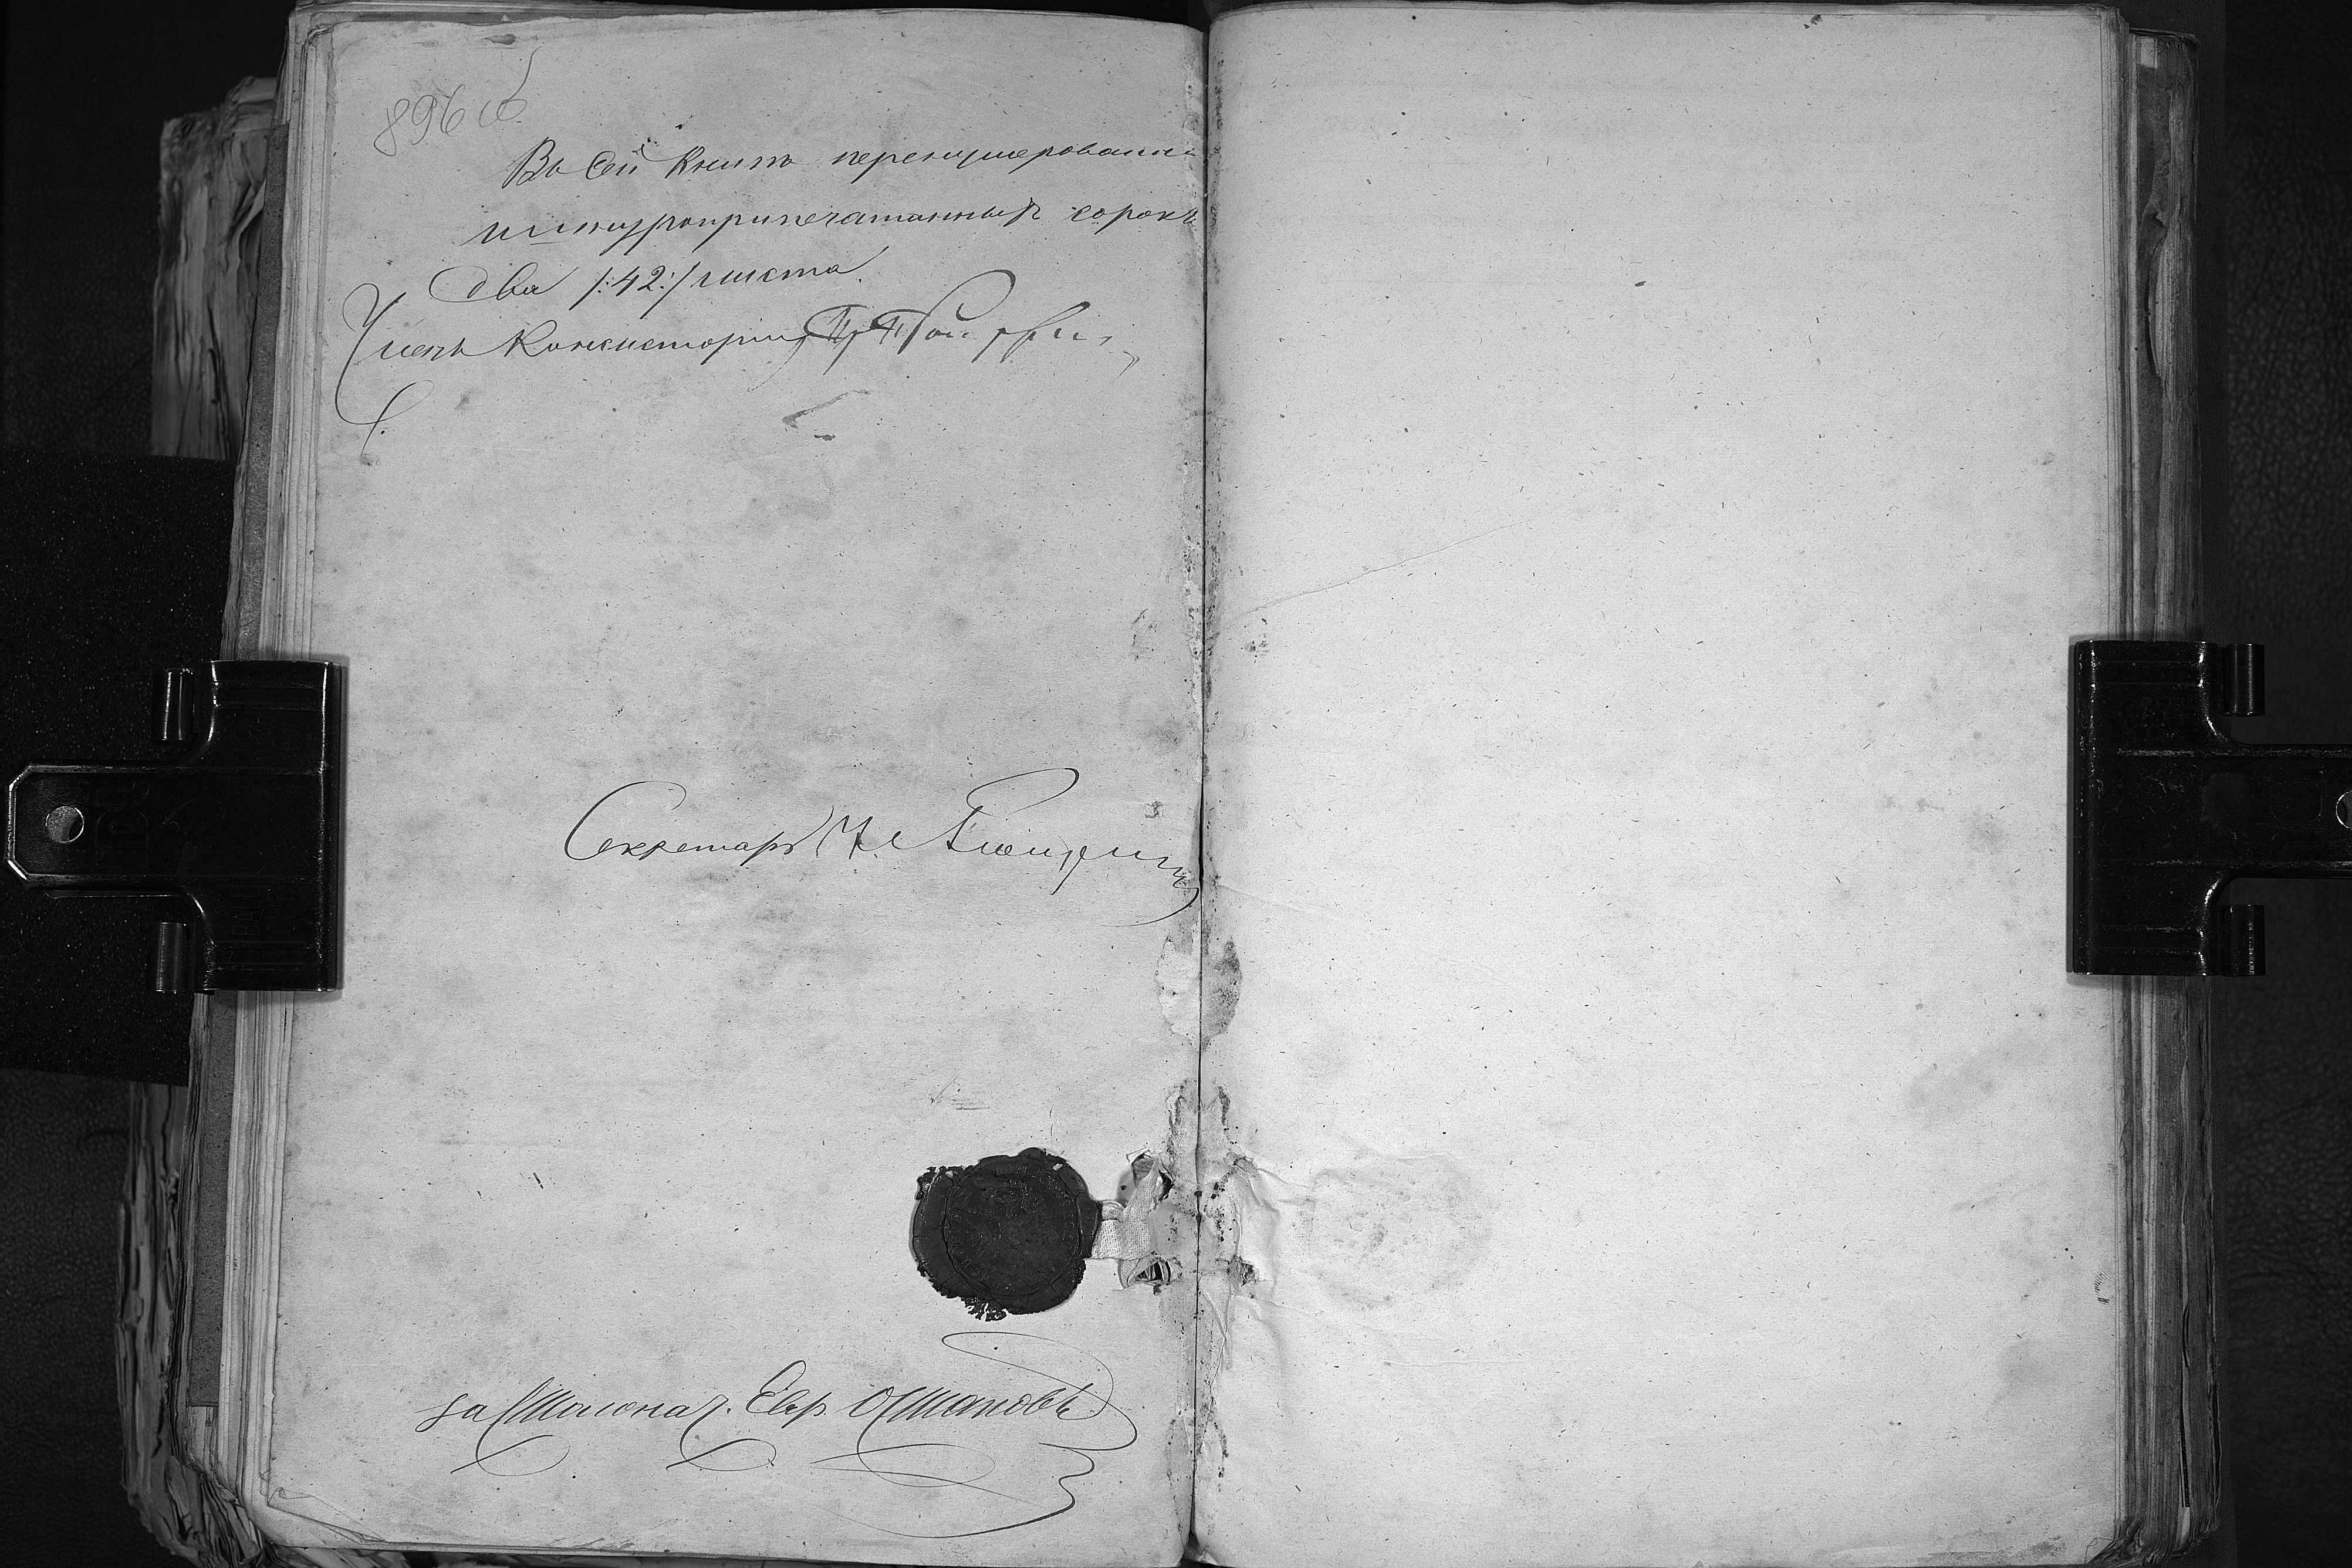 896 об
Въ сей книгѣ перенумерованны
шнуроприпечатанныхъ сорокъ
два /:42:/ листа.
Членъ Консисторіи
Секретарь
За Столонач. Евг.